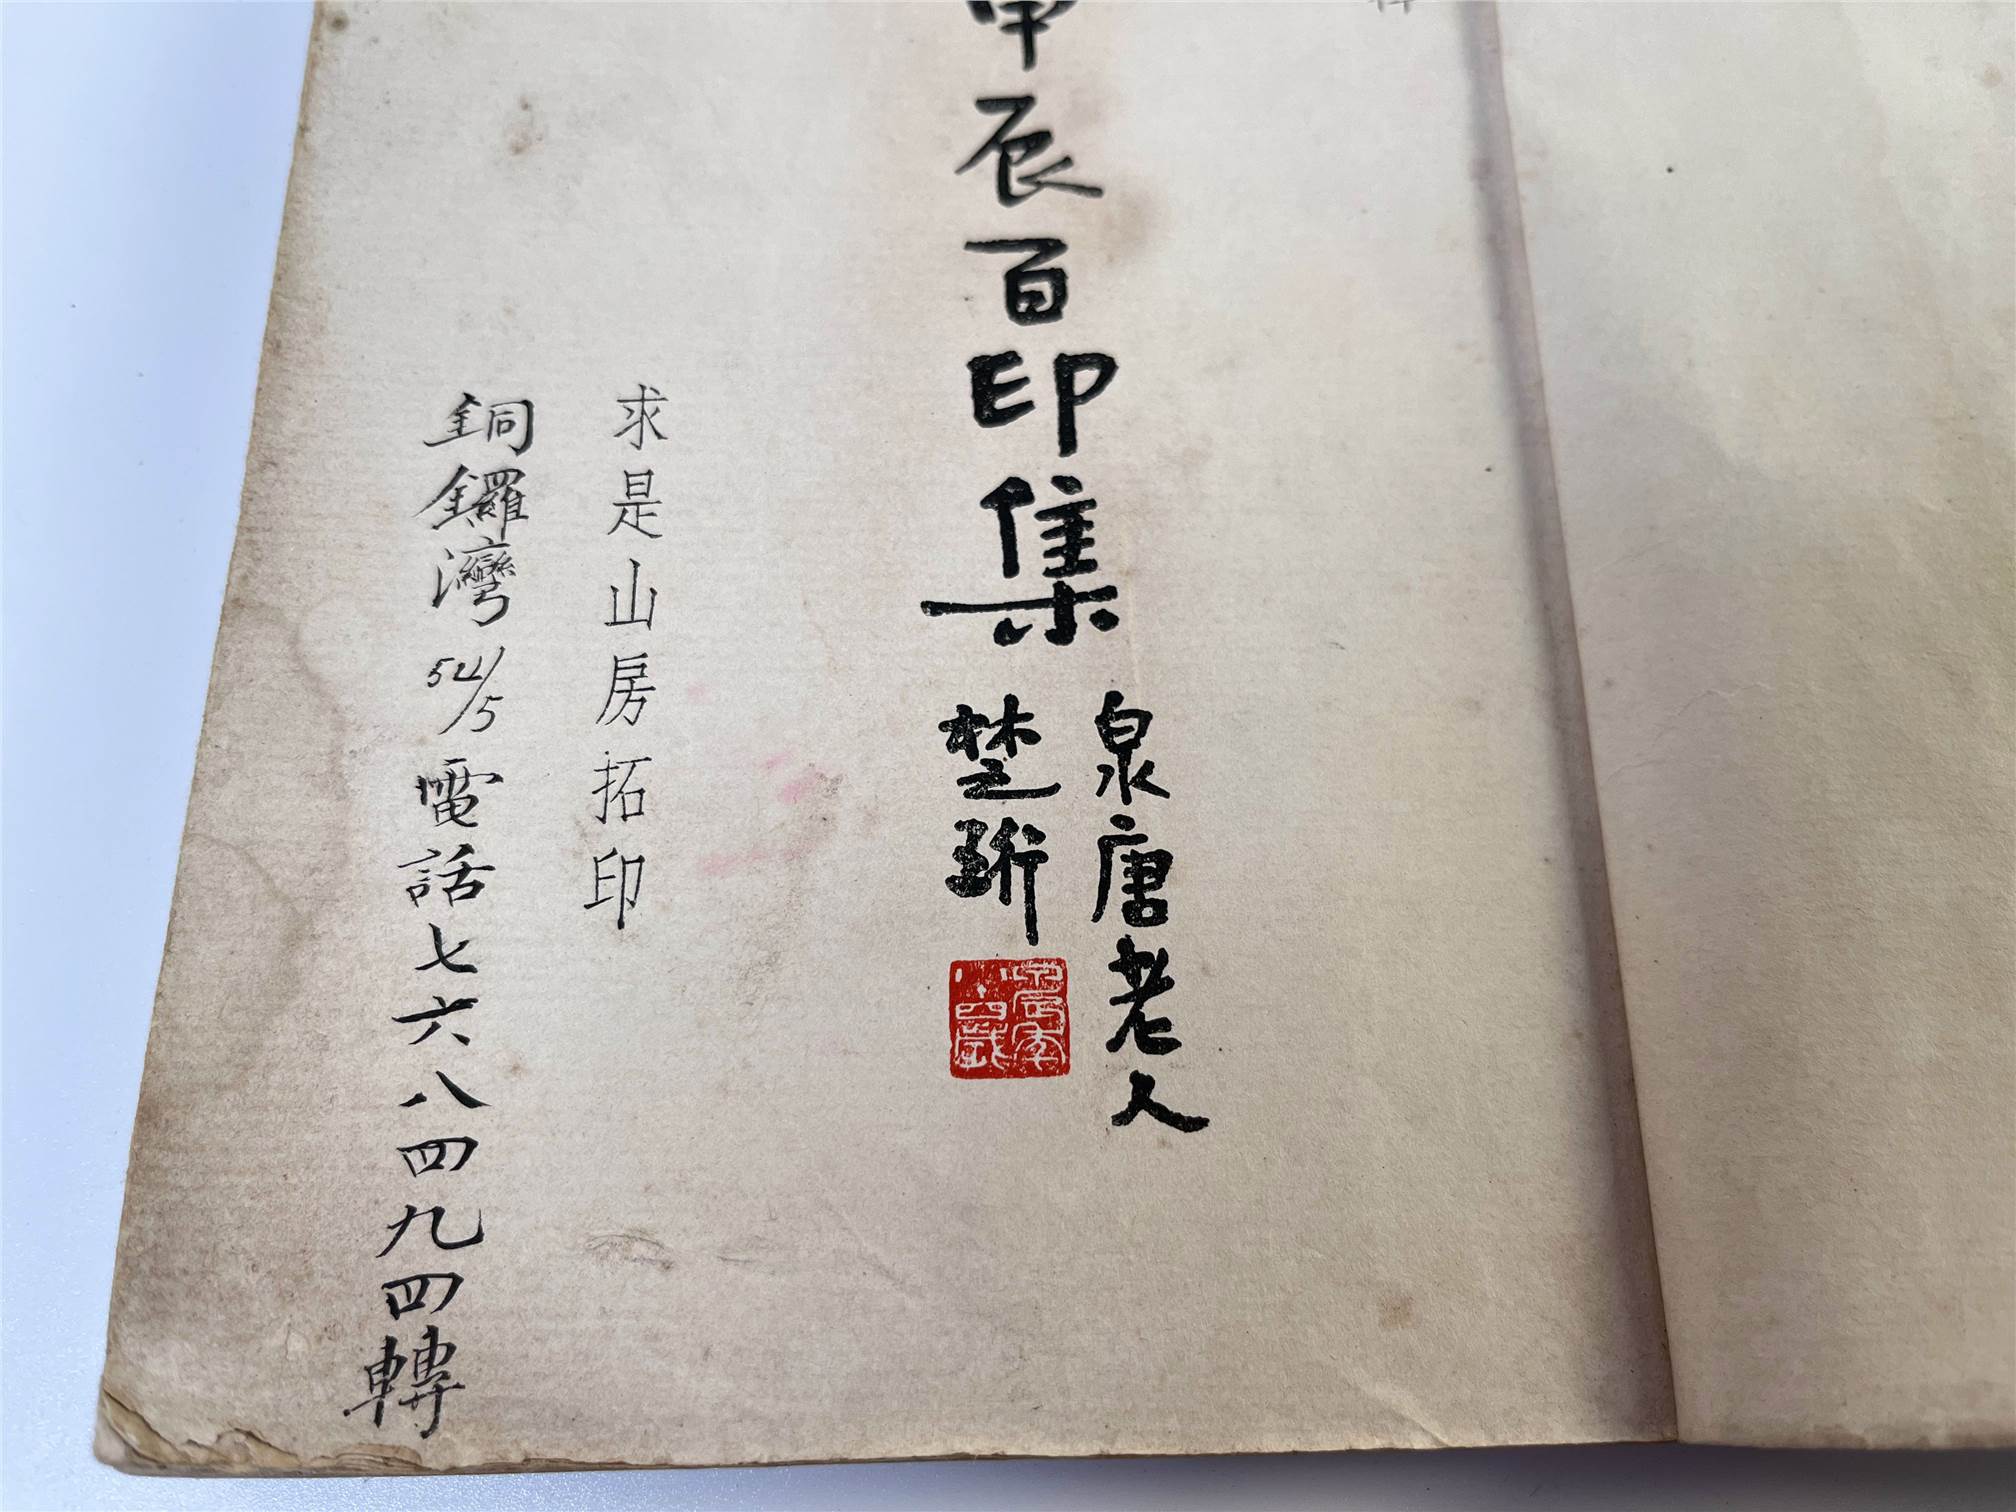 甲辰百印集
泉唐老人
楚珩
求是山房拓印
銅鑼灣 54/5 電話七六八四九四轉